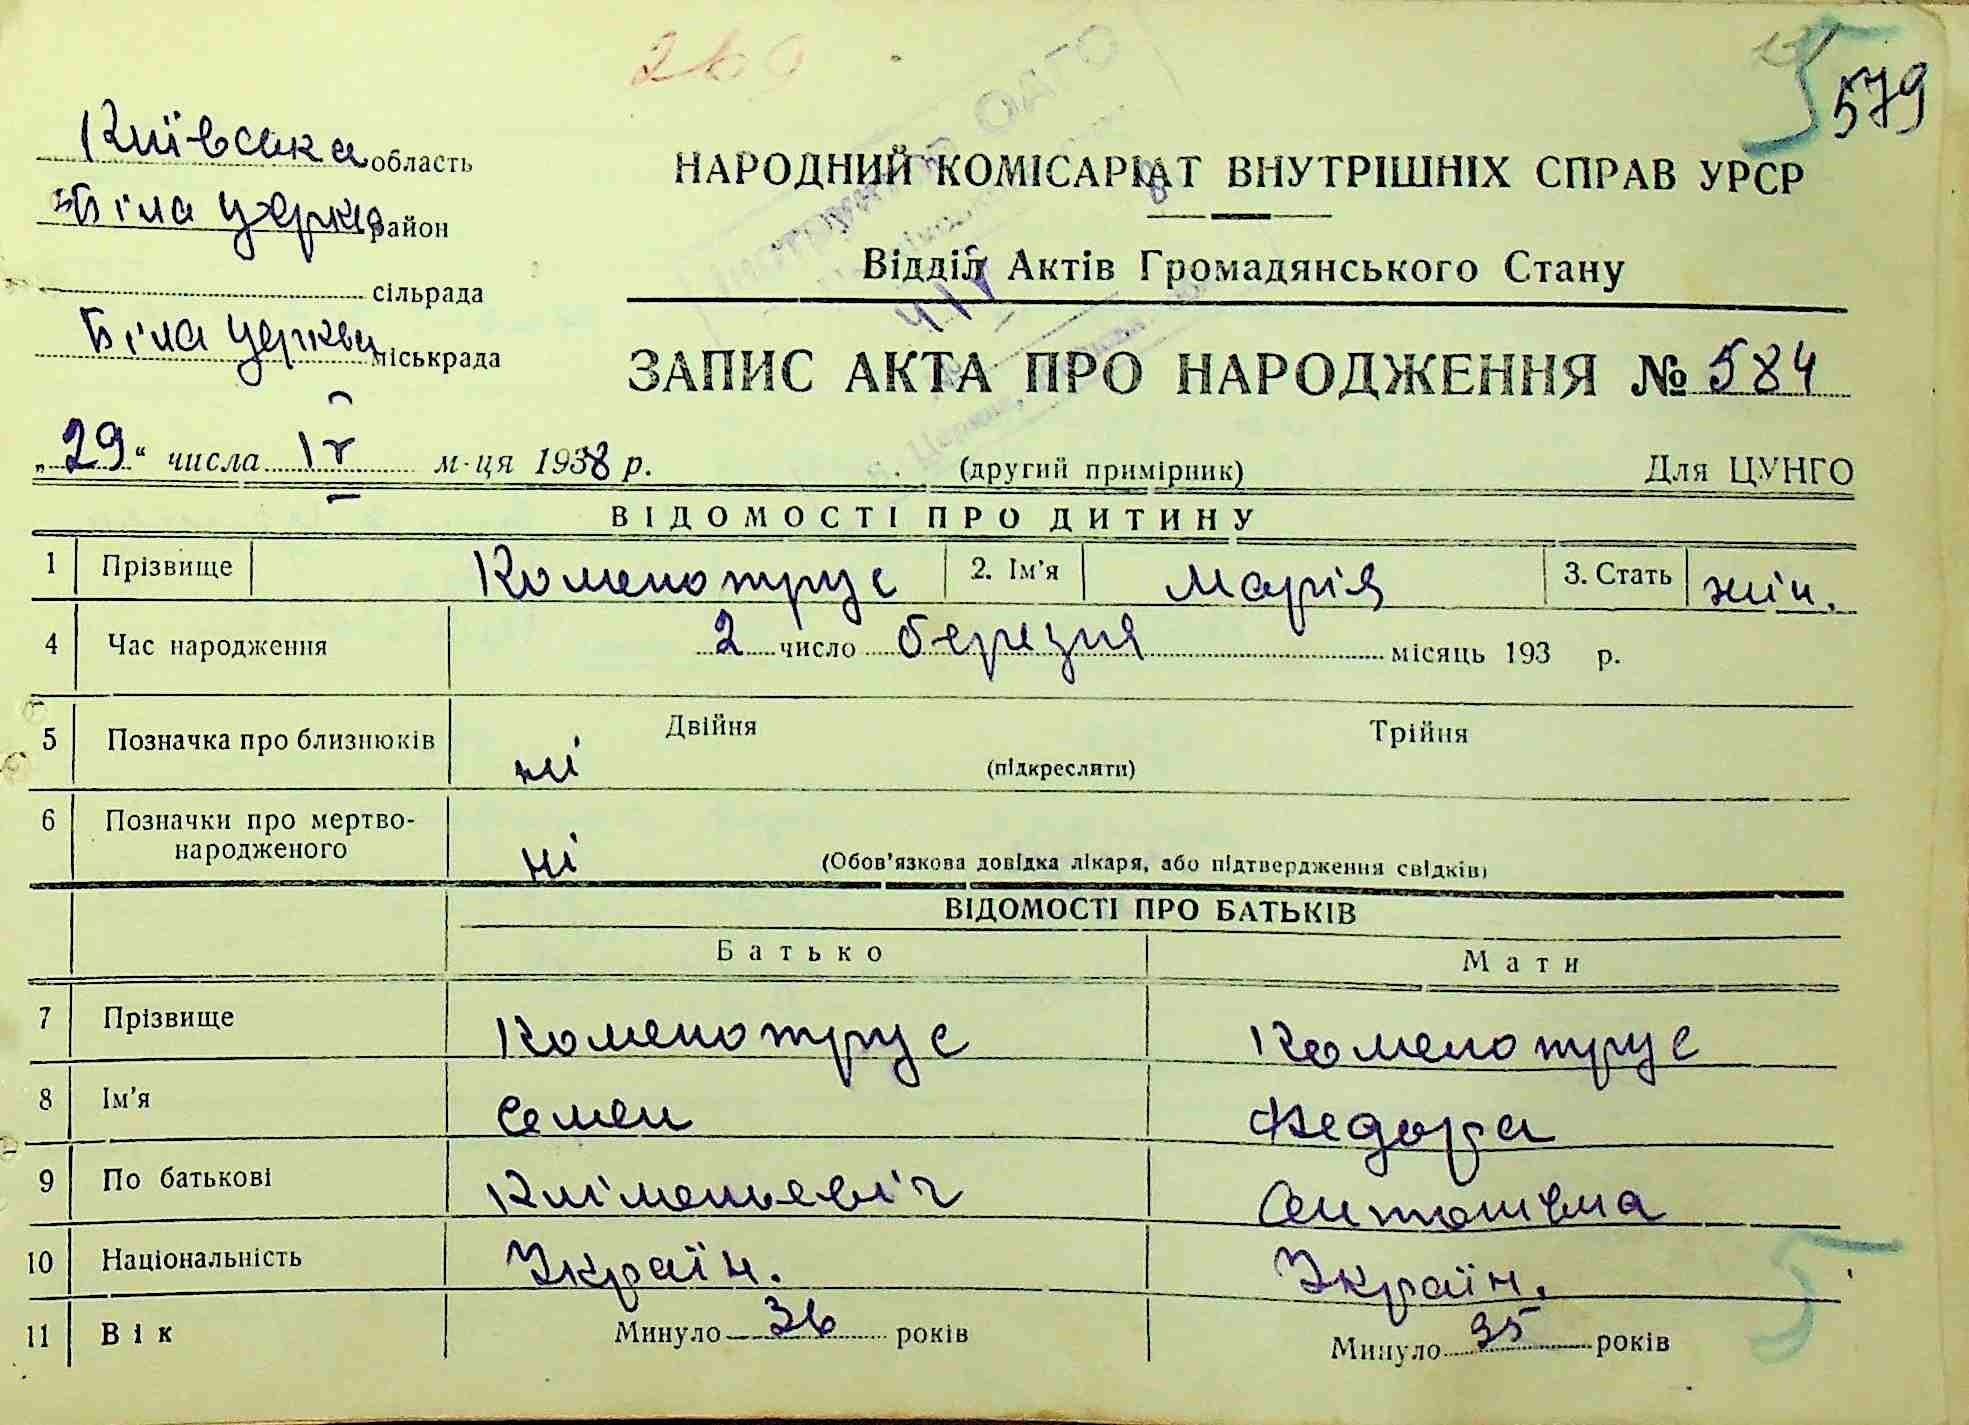 579
Київська область
Біла церква район
сільрада
Біла церква міськрада
НАРОДНИЙ КОМІСАРІАТ ВНУТРІШНІХ СПРАВ УРСР
Відділ Актів Громадянського Стану
ЗАПИС АКТА ПРО НАРОДЖЕННЯ № 584
„29“ числа IV м-ця 1938 р. (другий примірник) Для ЦУНГО
ВІДОМОСТІ ПРО ДИТИНУ
1 Прізвище Коменотрус 2. Ім'я Марія 3. Стать жін.
4 Час народження 2 число березня місяць 193 р.
5 Позначка про близнюків ні Двійня Трійня
(підкреслити)
6 Позначки про мертво-
народженого ні (Обов'язкова довідка лікаря, або підтвердження свідків)
ВІДОМОСТІ ПРО БАТЬКІВ
Батько Мати
7 Прізвище Коменотрус Коменотрус
8 Ім'я Семен Федора
9 По батькові Кліменьевіч Антонівна
10 Національність Україн. Україн.
11 Вік Минуло 36 років Минуло 35 років